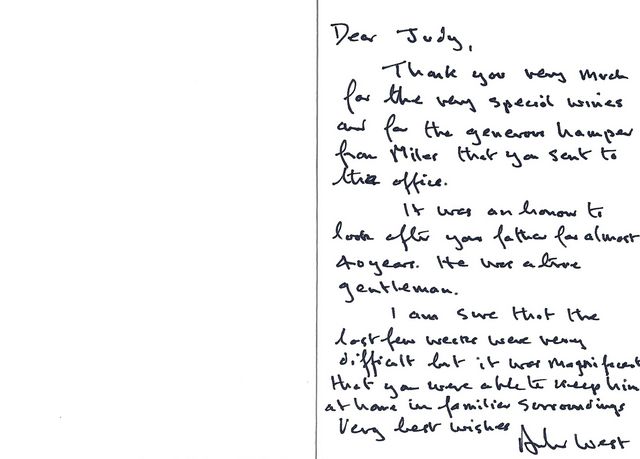 Dear Judy,
Thank you very much
for the very special wines
and for the generous hamper
from Miles that you sent to
the office.
It was an honour to
look after your father for almost
40 years. He was a true
gentleman.
I am sure that the
last few weeks were very
difficult but it was magnificent
that you were able to keep him
at home in familiar surroundings
Very best wishes
West